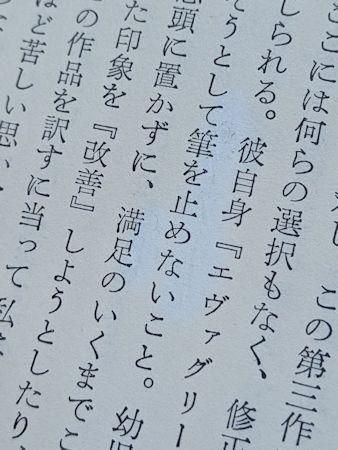 ここには何らの選択もなく、修正
しられる。彼自身『エヴァグリー
そうとして筆を止めないこと。幼児
念頭に置かずに、満足のいくまでこ
た印象を『改善』しようとしたり
の作品を訳すに当って私
ほど苦しい思い
この第三作